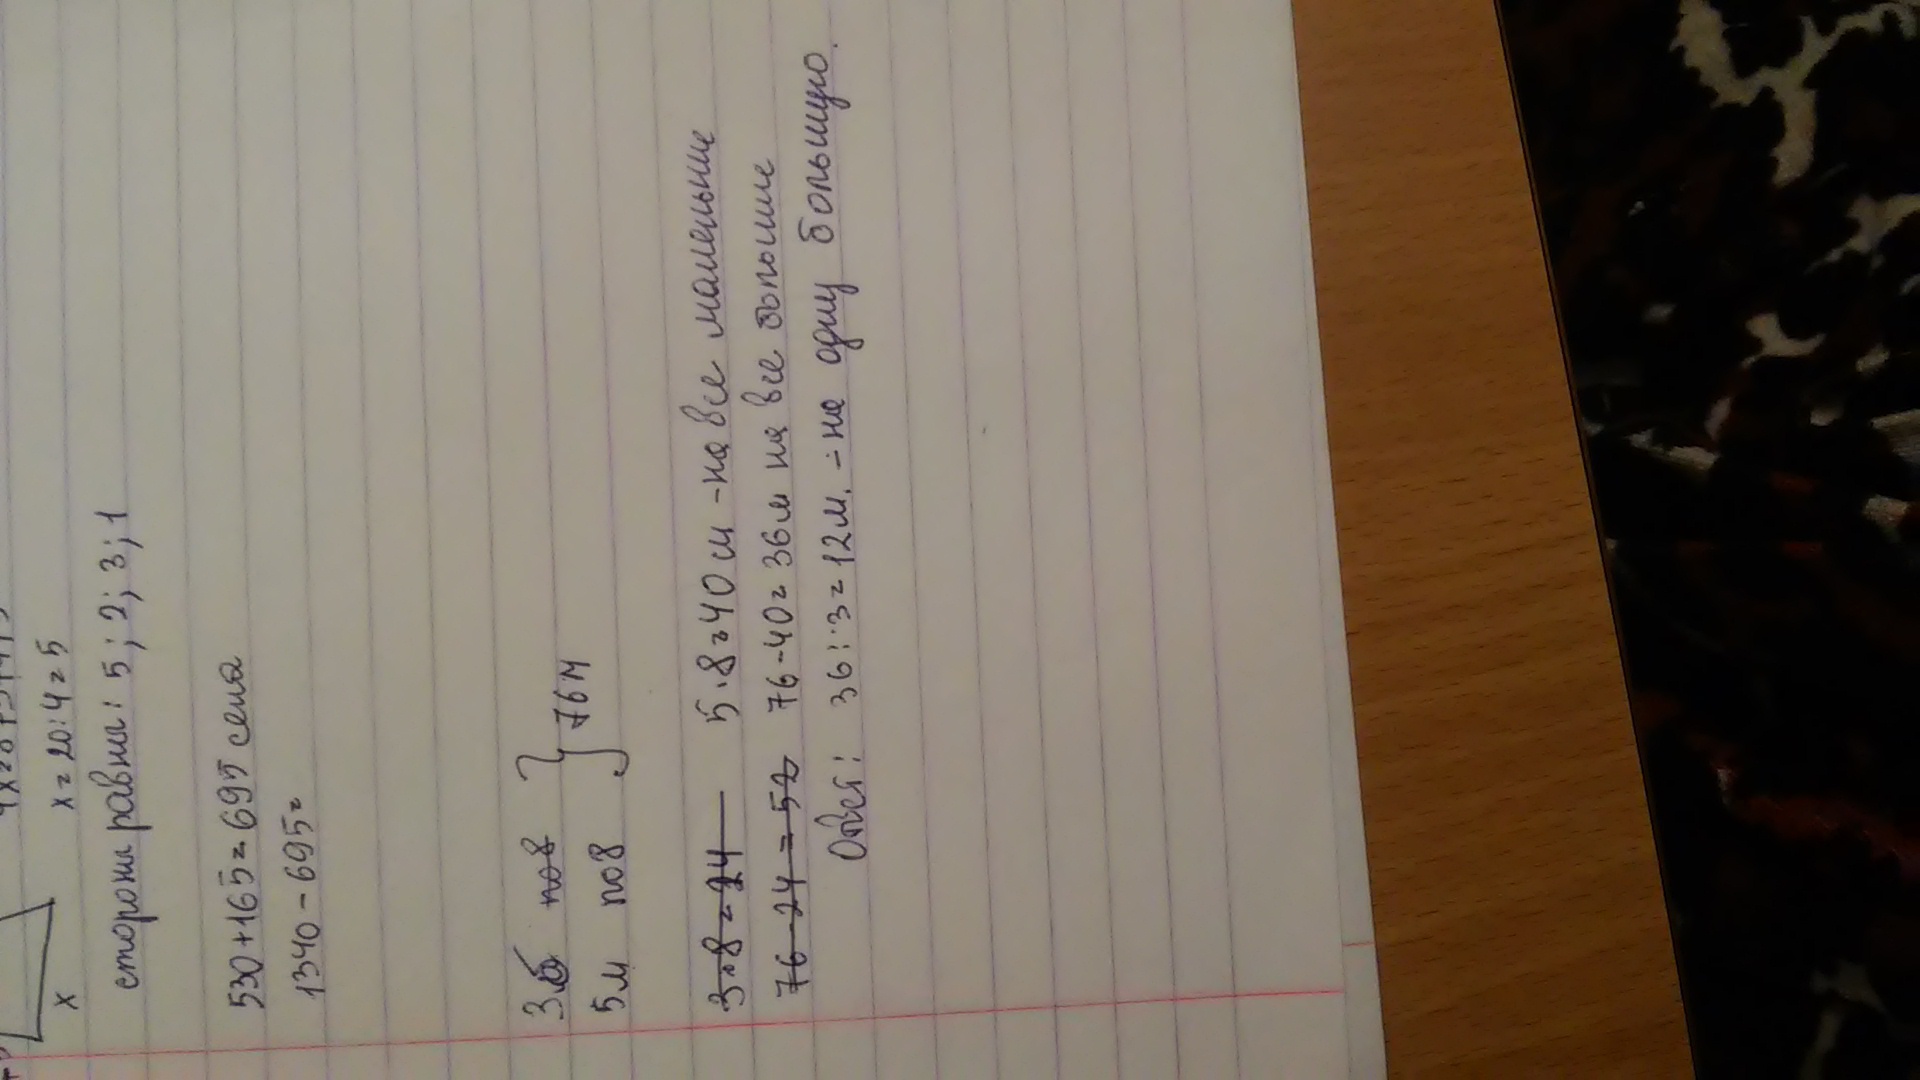 x x = 20:4 = 5
стороны равны: 5; 2; 3; 1
530+165 = 695 сена
1340 - 695 =
3б по8
5м по8
} 76м
3·8 = 24 5·8 = 40 м - на все маленьние
76 - 24 = 52 76 - 40 = 36м на все большие
Ответ: 36:3 = 12м. - на одну большую.